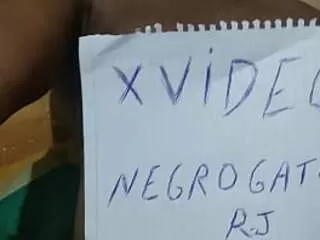 XVIDEO
NEGROGAT
R.J